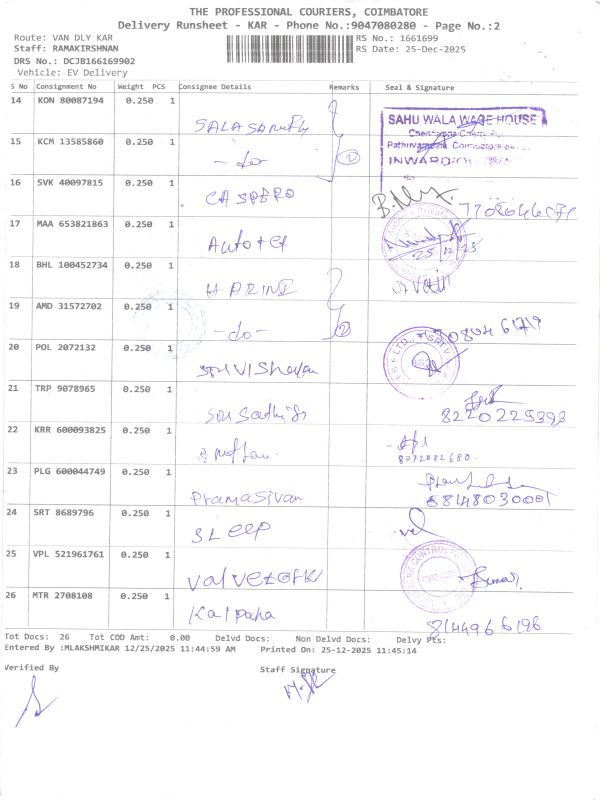 THE PROFESSIONAL COURIERS, COIMBATORE
Delivery Runsheet - KAR - Phone No.:9047080280 - Page No.:2
Route: VAN DLY KAR
RS No.: 1661699
Staff: RAMAKIRSHNAN
RS Date: 25-Dec-2025
DRS No.: DCJB166169902
Vehicle: EV Delivery
S No Consignment No Weight PCS Consignee Details Remarks Seal & Signature
14 KON 80087194 0.250 1
SAHU WALA WARE HOUSE
15 KCM 13585860 0.250 1 -do- 2
INWARD
16 SVK 40097815 0.250 1 CASPERO
17 MAA 653821863 0.250 1 Autotef
25/12/25
18 BHL 100452734 0.250 1 HARINI
19 AMD 31572702 0.250 1 -do- 2
20 POL 2072132 0.250 1 SRI VIShalan
21 TRP 9078965 0.250 1 SRI
8220225393
22 KRR 600093825 0.250 1
8072082680.
23 PLG 600044749 0.250 1 Pramasivan
88148030001
24 SRT 8689796 0.250 1 SLEEP
25 VPL 521961761 0.250 1
Kumar
26 MTR 2708108 0.250 1 Kalpana
8144966196
Tot Docs: 26 Tot COD Amt: 0.00 Delvd Docs: Non Delvd Docs: Delvy Pts:
Entered By :MLAKSHMIKAR 12/25/2025 11:44:59 AM Printed On: 25-12-2025 11:45:14
Verified By
Staff Signature